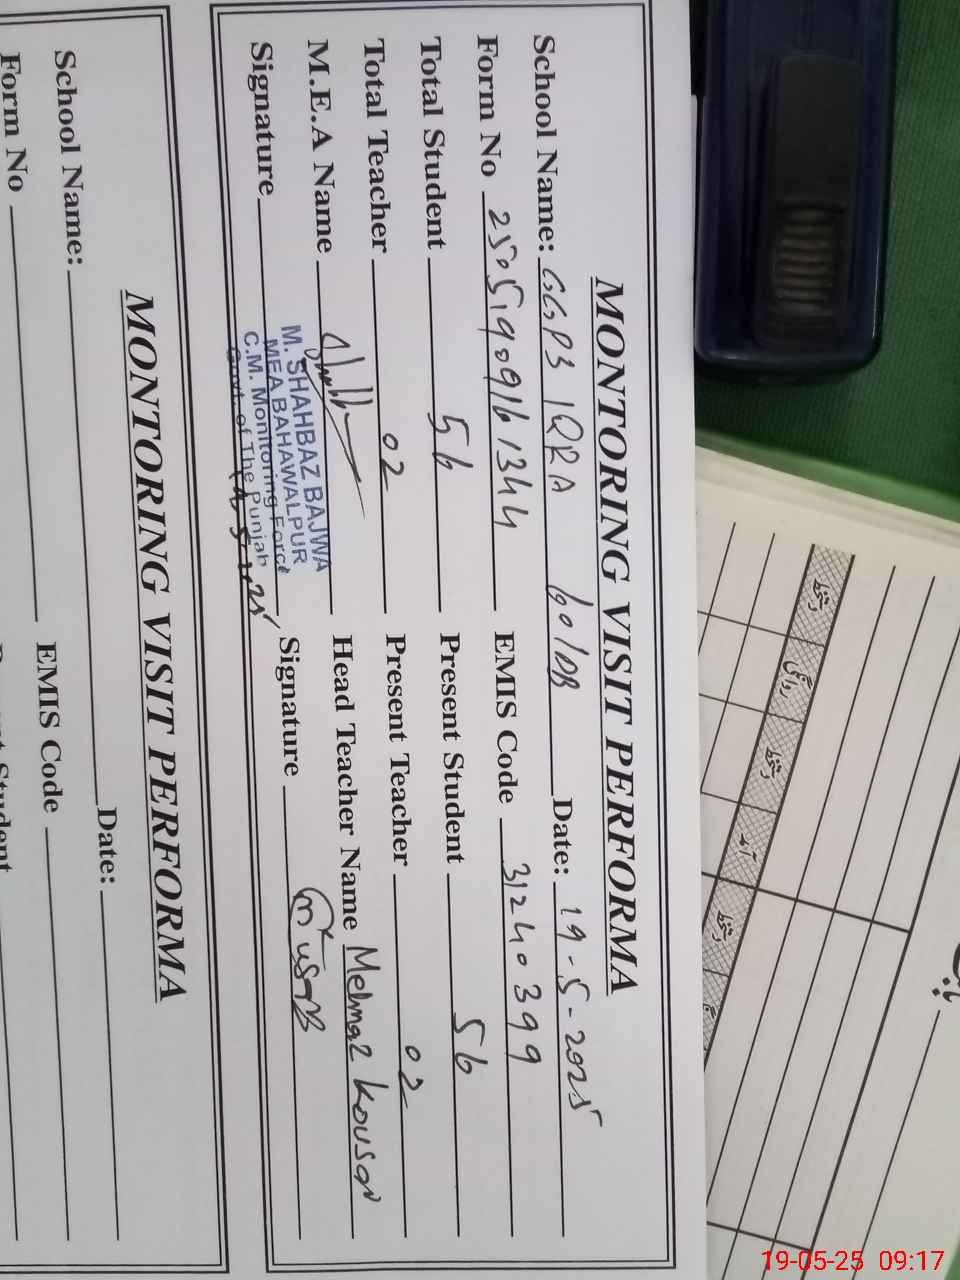 MONTORING VISIT PERFORMA
School Name: GGPS IQRA 60/DB Date: 19-5-2025
Form No 25051909161344 EMIS Code 31240399
Total Student 56 Present Student 56
Total Teacher 02 Present Teacher 02
M.E.A Name Head Teacher Name Mehnaz Kousar
Signature Signature
M. SHAHBAZ BAJWA
MEA BAHAWALPUR
C.M. Monitoring Force
Govt. of The Punjab
MONTORING VISIT PERFORMA
School Name: Date:
Form No EMIS Code
دستخط
روانگی
دستخط
آمد
دستخط
19-05-25 09:17